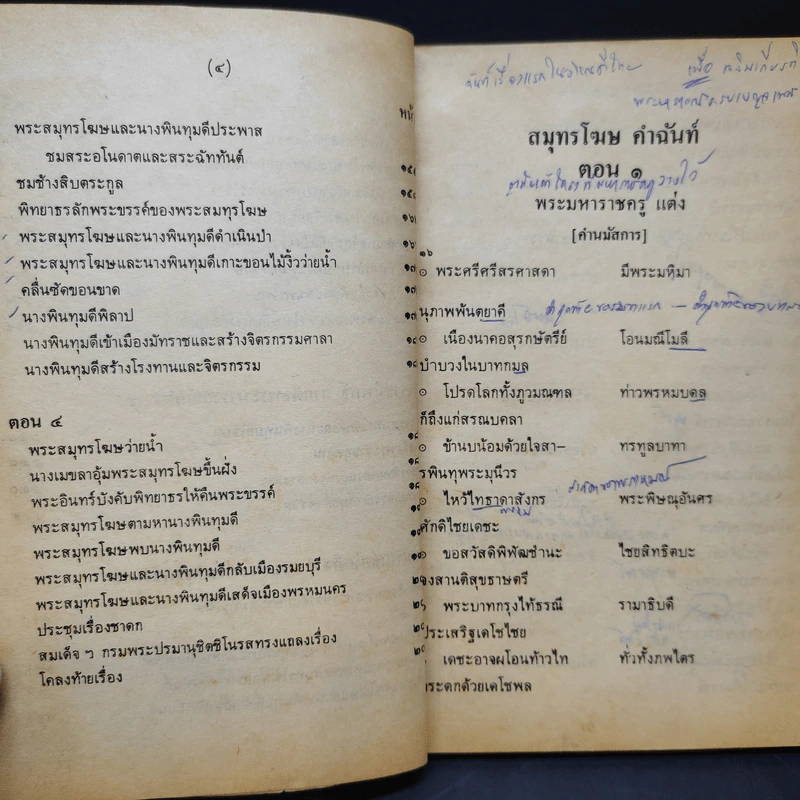 (๔)
พระสมุทรโฆษและนางพินทุมดีประพาส
ชมสระอโนดาตและสระฉัททันต์
ชมช้างสิบตระกูล
พิทยาธรลักพระขรรค์ของพระสมุทรโฆษ
พระสมุทรโฆษและนางพินทุมดีดำเนินป่า
พระสมุทรโฆษและนางพินทุมดีเกาะขอนไม้งิ้วว่ายน้ำ
คลื่นซัดขอนขาด
นางพินทุมดีพิลาป
นางพินทุมดีเข้าเมืองมัทราชและสร้างจิตรกรรมศาลา
นางพินทุมดีสร้างโรงทานและจิตรกรรม
ตอน ๔
พระสมุทรโฆษว่ายน้ำ
นางเมขลาอุ้มพระสมุทรโฆษขึ้นฝั่ง
พระอินทร์บังคับพิทยาธรให้คืนพระขรรค์
พระสมุทรโฆษตามหานางพินทุมดี
พระสมุทรโฆษพบนางพินทุมดี
พระสมุทรโฆษและนางพินทุมดีกลับเมืองรมยบุรี
พระสมุทรโฆษและนางพินทุมดีเสด็จเมืองพรหมนคร
ประชุมเรื่องชาดก
สมเด็จ ฯ กรมพระปรมานุชิตชิโนรสทรงแถลงเรื่อง
โคลงท้ายเรื่อง
ฉันท์เรื่องแรกในวรรณคดีไทย
สมุทรโฆษ คำฉันท์
ตอน ๑
พระมหาราชครู แต่ง
[คำนมัสการ]
๑๖
๏ พระศรีศรีสรศาสดา มีพระมหิมา
นุภาพพันตยาดี
๏ เนืองนาคอสุรกษัตรีย์ โอนมณีโมลี
บำบวงในบาทกมล
๏ โปรดโลกทั้งภูวมณฑล ท่าวพรหมบดล
ก็ถึงแก่สรณบคลา
๏ ข้านบน้อมด้วยใจสา— ทรทูลบาทา
รพินทุพระมุนีวร
๏ ไหว้ไทธาดาสังกร พระพิษณุอันศร
ศักดิไชยเดชะ
๏ ขอสวัสดิพิพัฒชำนะ ไชยสิทธิตบะ
จงสานติสุขธาษตรี
๏ พระบาทกรุงไท้ธรณี รามาธิบดี
ประเสริฐเดโชไชย
เดชะอาจผโอนท้าวไท ทั่วทั้งภพไตร
ตระดกด้วยเดโชพล